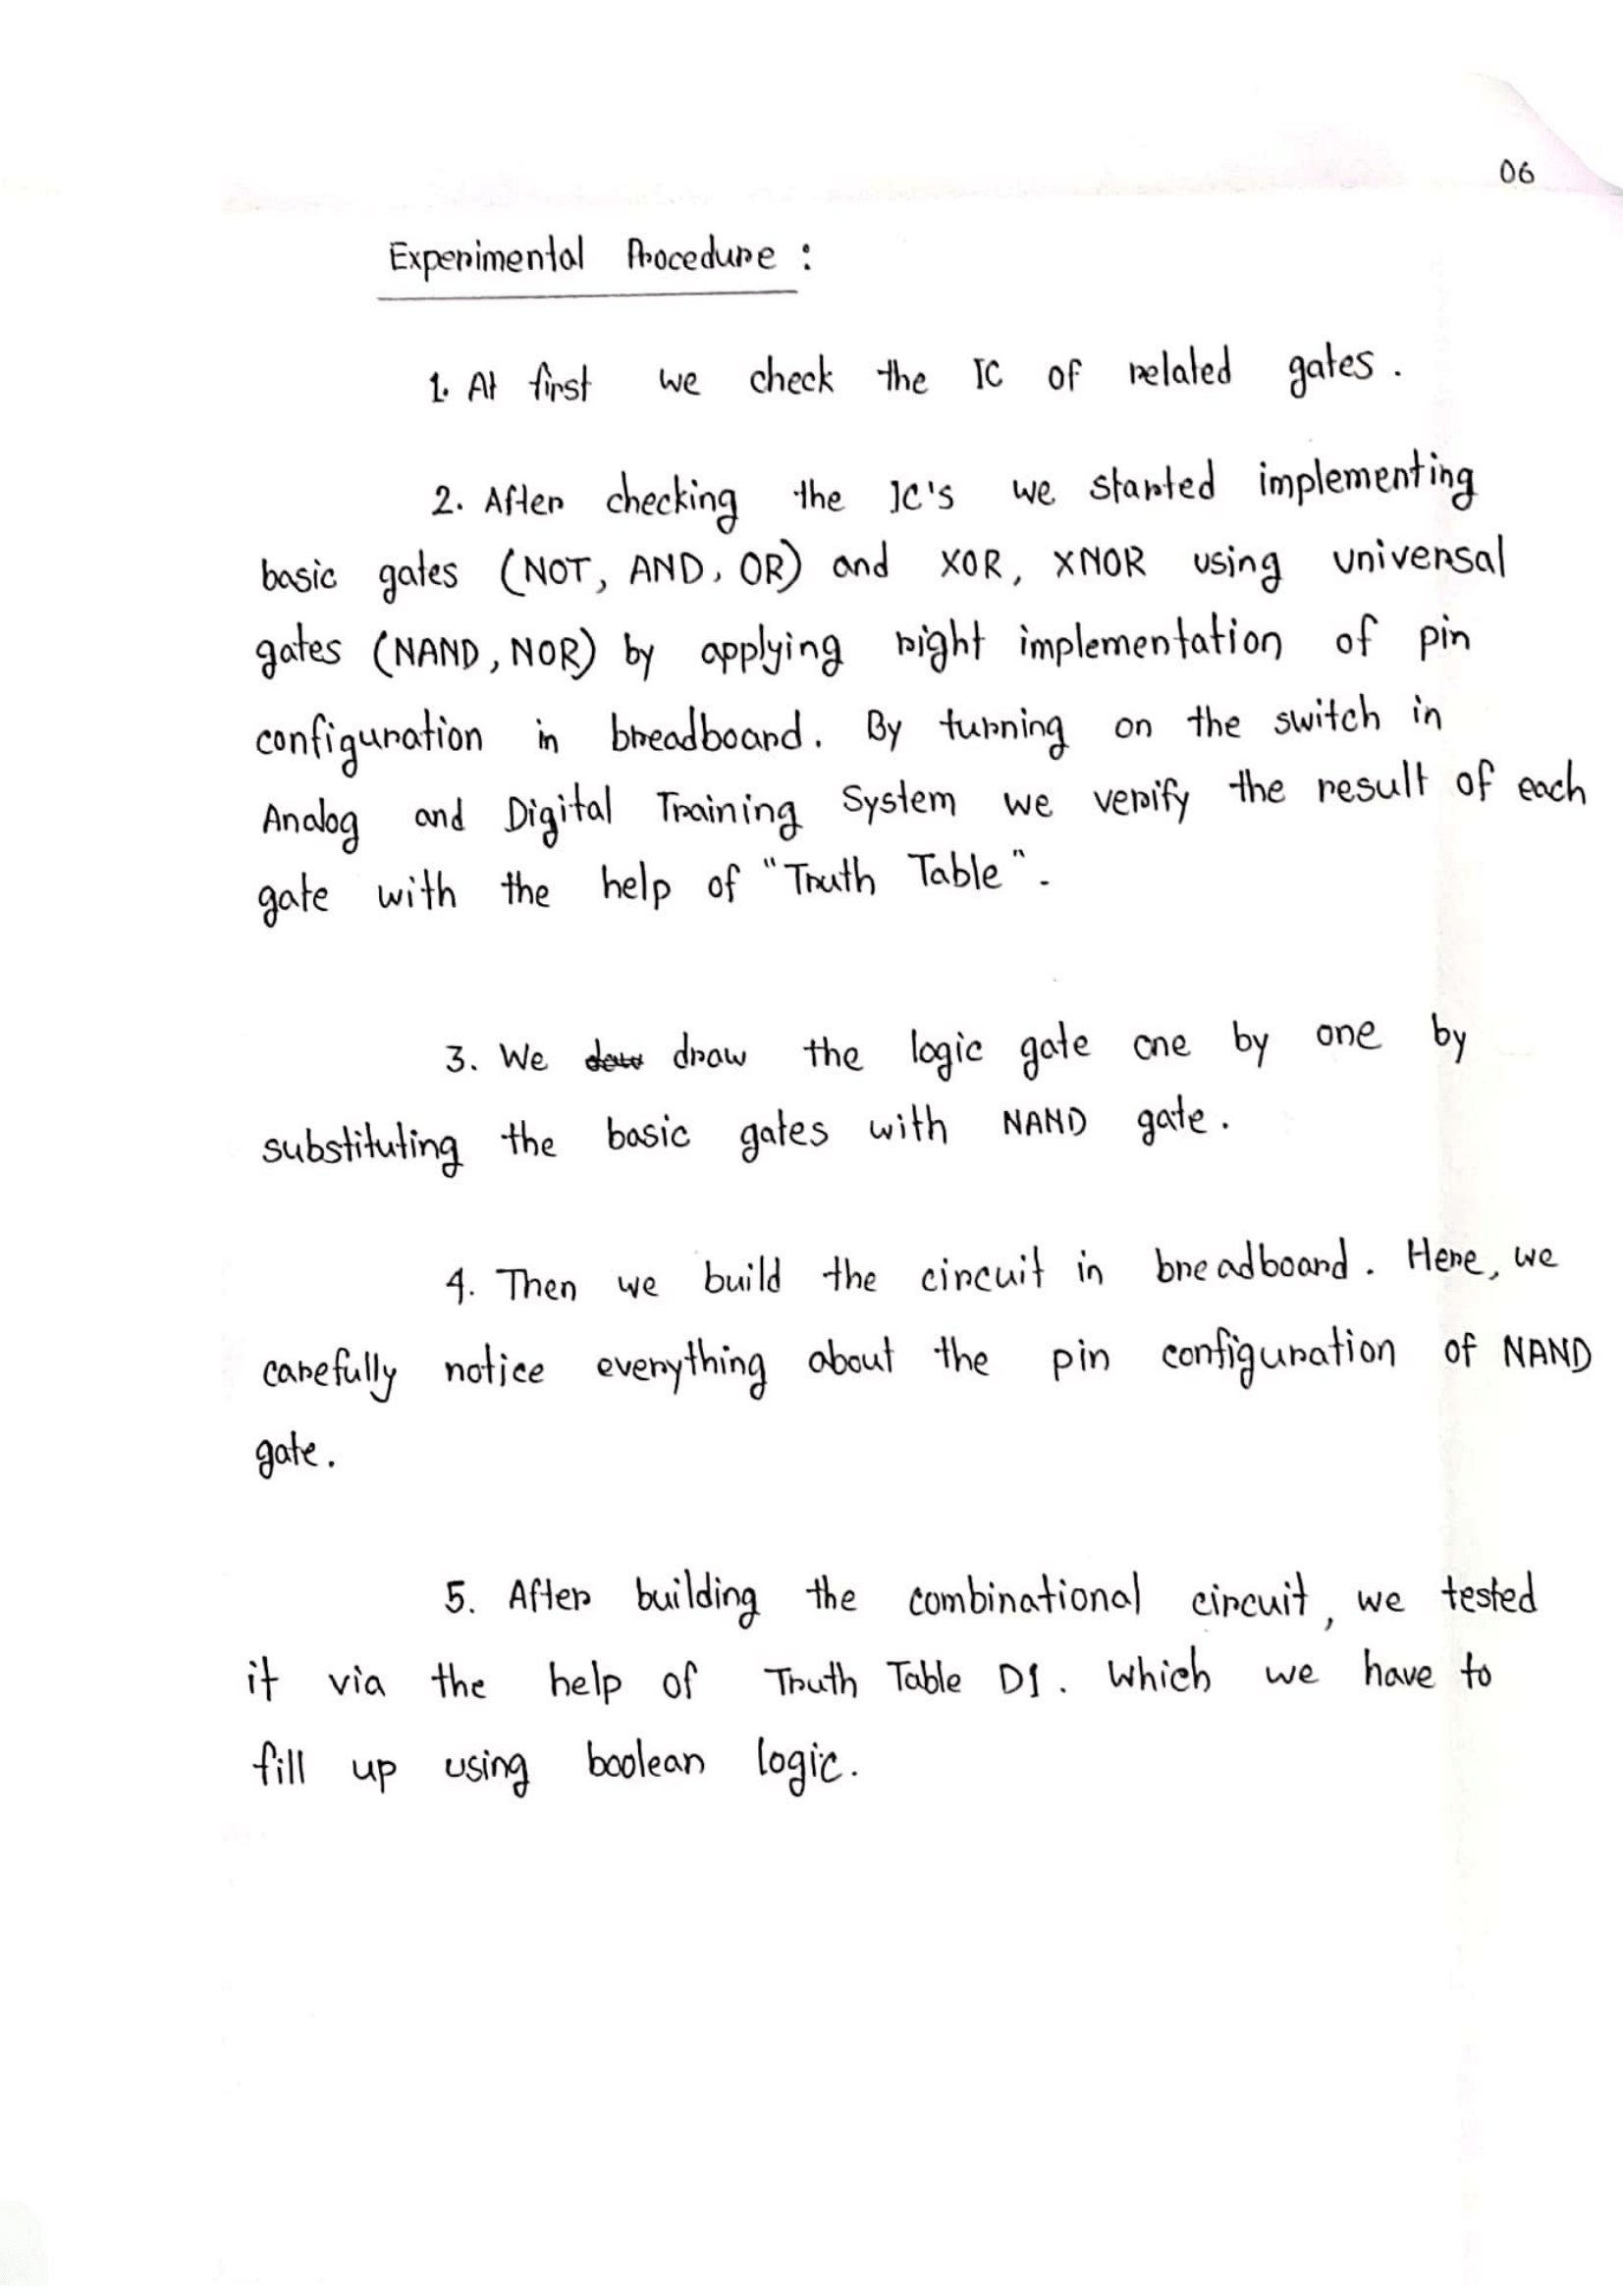 06
Experimental Procedure :
1. At first we check the IC of related gates .
2. After checking the IC's we started implementing
basic gates (NOT, AND, OR) and XOR, XNOR using universal
gates (NAND, NOR) by applying right implementation of pin
configuration in breadboard. By turning on the switch in
Analog and Digital Training System we verify the result of each
gate with the help of "Truth Table".
3. We draw the logic gate one by one by
substituting the basic gates with NAND gate.
4. Then we build the circuit in breadboard. Here, we
carefully notice everything about the pin configuration of NAND
gate.
5. After building the combinational circuit, we tested
it via the help of Truth Table D1. Which we have to
fill up using boolean logic.